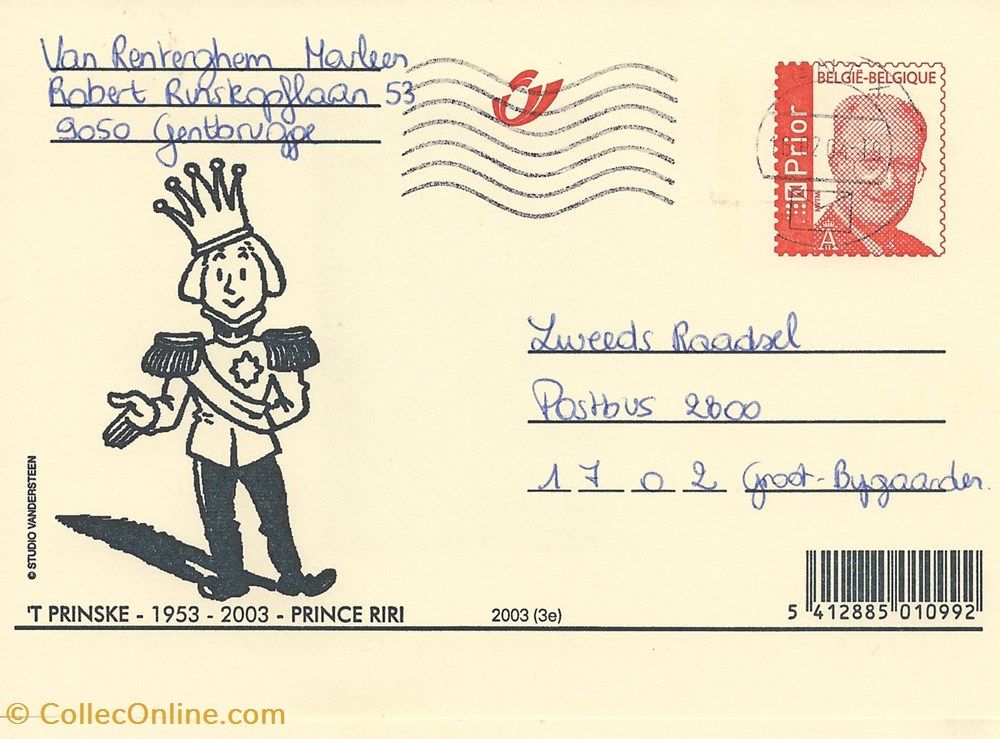 Van Renterghem Marleen
Robert Rinskopflaan 53
9050 Gentbrugge
BELGIË-BELGIQUE
Prior
MVTM
A
Zweeds Raadsel
Postbus 2800
1702 Groot-Bijgaarden
© STUDIO VANDERSTEEN
'T PRINSKE - 1953 - 2003 - PRINCE RIRI
2003 (3e)
5 412885 010992
© CollecOnline.com